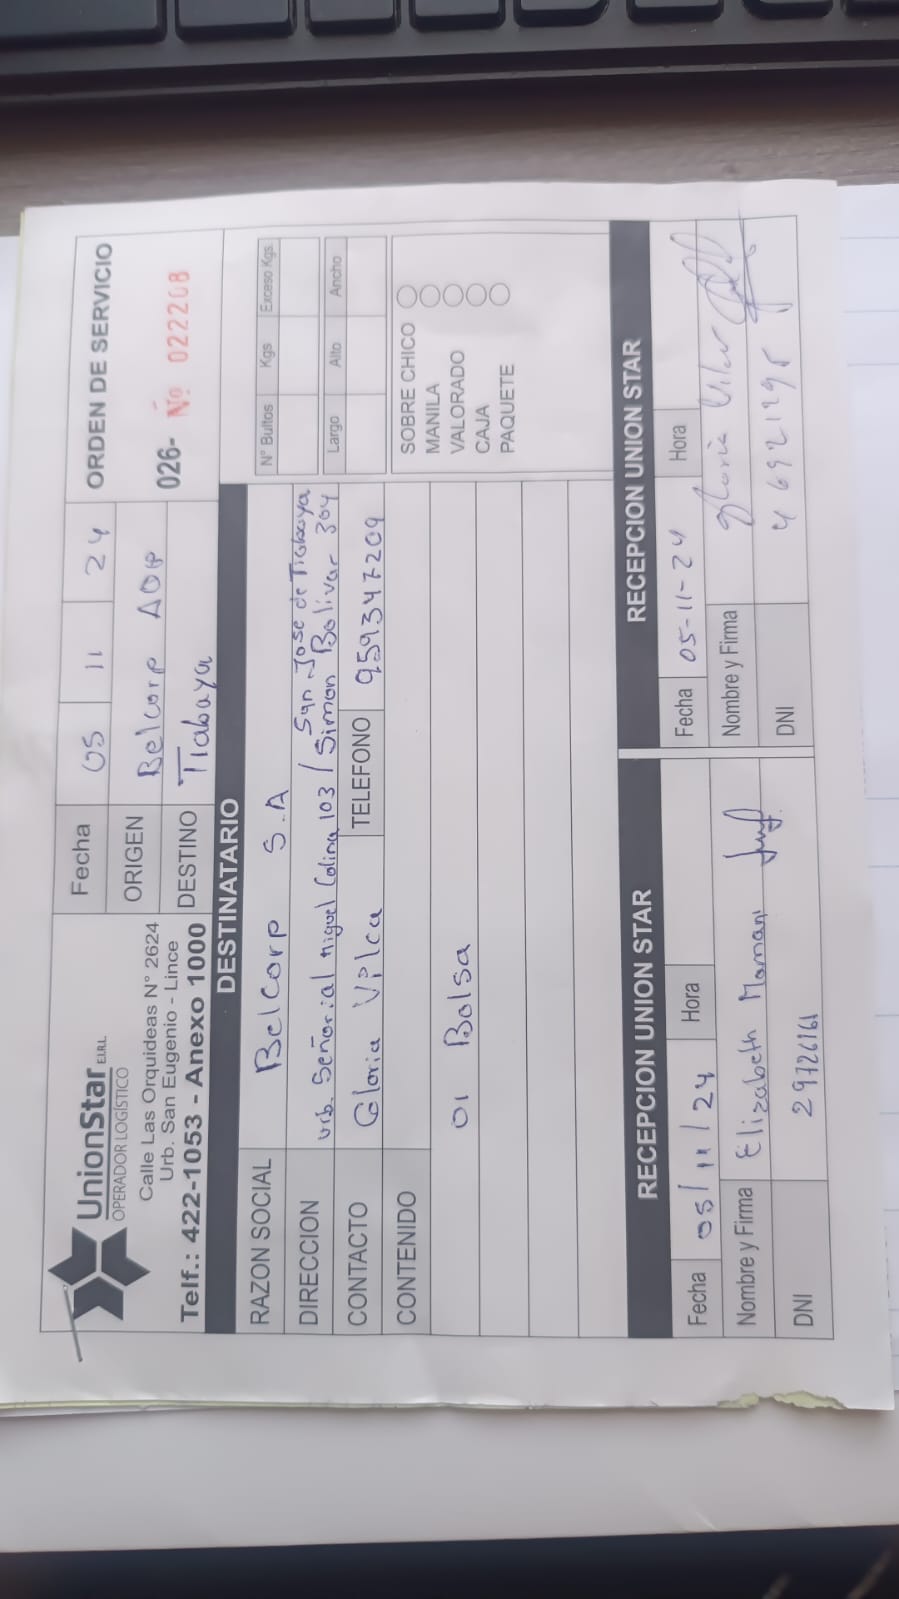 UnionStar E.I.R.L
OPERADOR LOGÍSTICO
Calle Las Orquideas N° 2624
Urb. San Eugenio - Lince
Telf.: 422-1053 - Anexo 1000
Fecha 05 11 24
ORIGEN Belcorp AQP
DESTINO Tiabaya
ORDEN DE SERVICIO
026- Nº 022208
DESTINATARIO
RAZON SOCIAL Belcorp S.A
DIRECCION Urb. Señorial Miguel Colina 103 / San Jose de Tiabaya
Simon Bolívar 304
CONTACTO Gloria Vilca TELEFONO 959347209
CONTENIDO
01 Bolsa
N° Bultos Kgs Exceso Kgs.
Largo Alto Ancho
SOBRE CHICO
MANILA
VALORADO
CAJA
PAQUETE
RECEPCION UNION STAR
Fecha 05/11/24 Hora
Nombre y Firma Elizabeth Mamani
DNI 29726161
RECEPCION UNION STAR
Fecha 05-11-24 Hora
Nombre y Firma Gloria Vilca
DNI 46921295